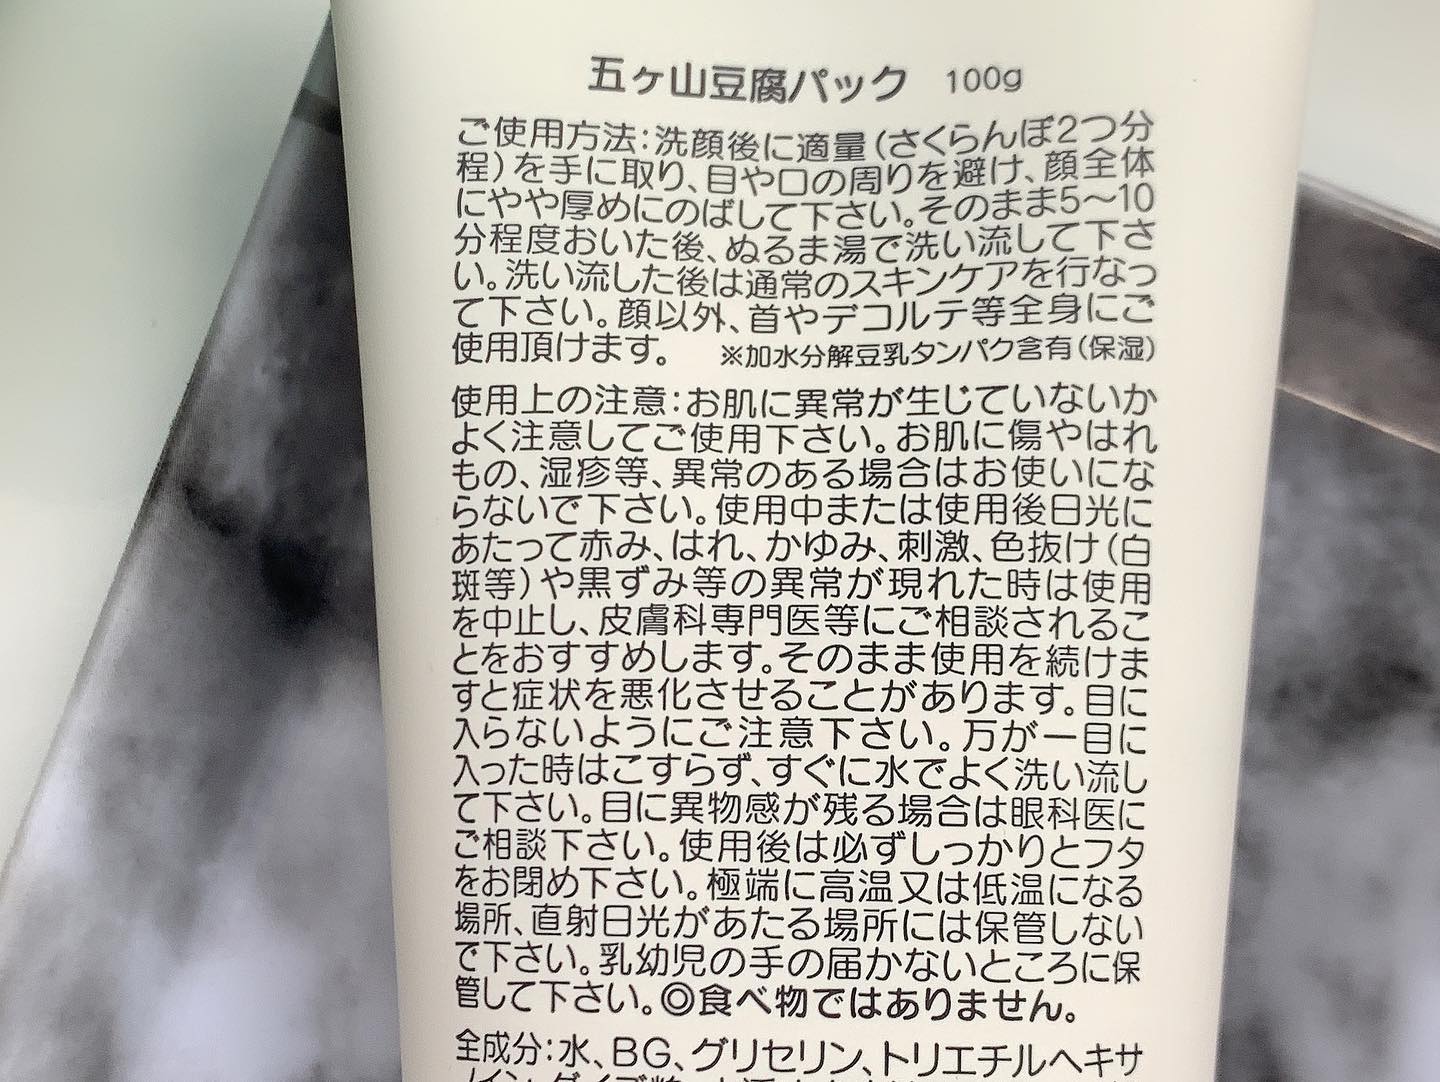 五ヶ山豆腐パック 100g
ご使用方法:洗顔後に適量(さくらんぼ2つ分
程)を手に取り、目や口の周りを避け、顔全体
にやや厚めにのばして下さい。そのまま5〜10
分程度おいた後、ぬるま湯で洗い流して下さ
い。洗い流した後は通常のスキンケアを行なっ
て下さい。顔以外、首やデコルテ等全身にご
使用頂けます。 ※加水分解豆乳タンパク含有(保湿)
使用上の注意:お肌に異常が生じていないか
よく注意してご使用下さい。お肌に傷やはれ
もの、湿疹等、異常のある場合はお使いにな
らないで下さい。使用中または使用後日光に
あたって赤み、はれ、かゆみ、刺激、色抜け(白
斑等)や黒ずみ等の異常が現れた時は使用
を中止し、皮膚科専門医等にご相談されるこ
とをおすすめします。そのまま使用を続けま
すと症状を悪化させることがあります。目に
入らないようにご注意下さい。万が一目に
入った時はこすらず、すぐに水でよく洗い流し
て下さい。目に異物感が残る場合は眼科医に
ご相談下さい。使用後は必ずしっかりとフタ
をお閉め下さい。極端に高温又は低温になる
場所、直射日光があたる場所には保管しない
で下さい。乳幼児の手の届かないところに保
管して下さい。◎食べ物ではありません。
全成分:水、BG、グリセリン、トリエチルヘキサ